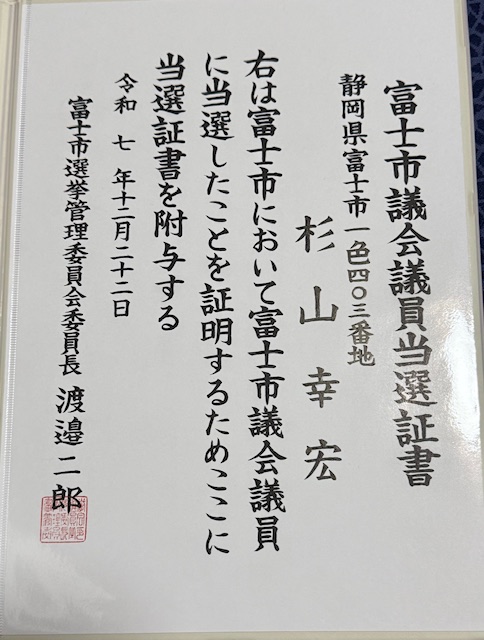 富士市議会議員当選証書
静岡県富士市一色四〇三番地
杉山幸宏
右は富士市において富士市議会議員
に当選したことを証明するためここに
当選証書を附与する
令和七年十二月二十二日
富士市選挙管理委員会委員長 渡邉二郎